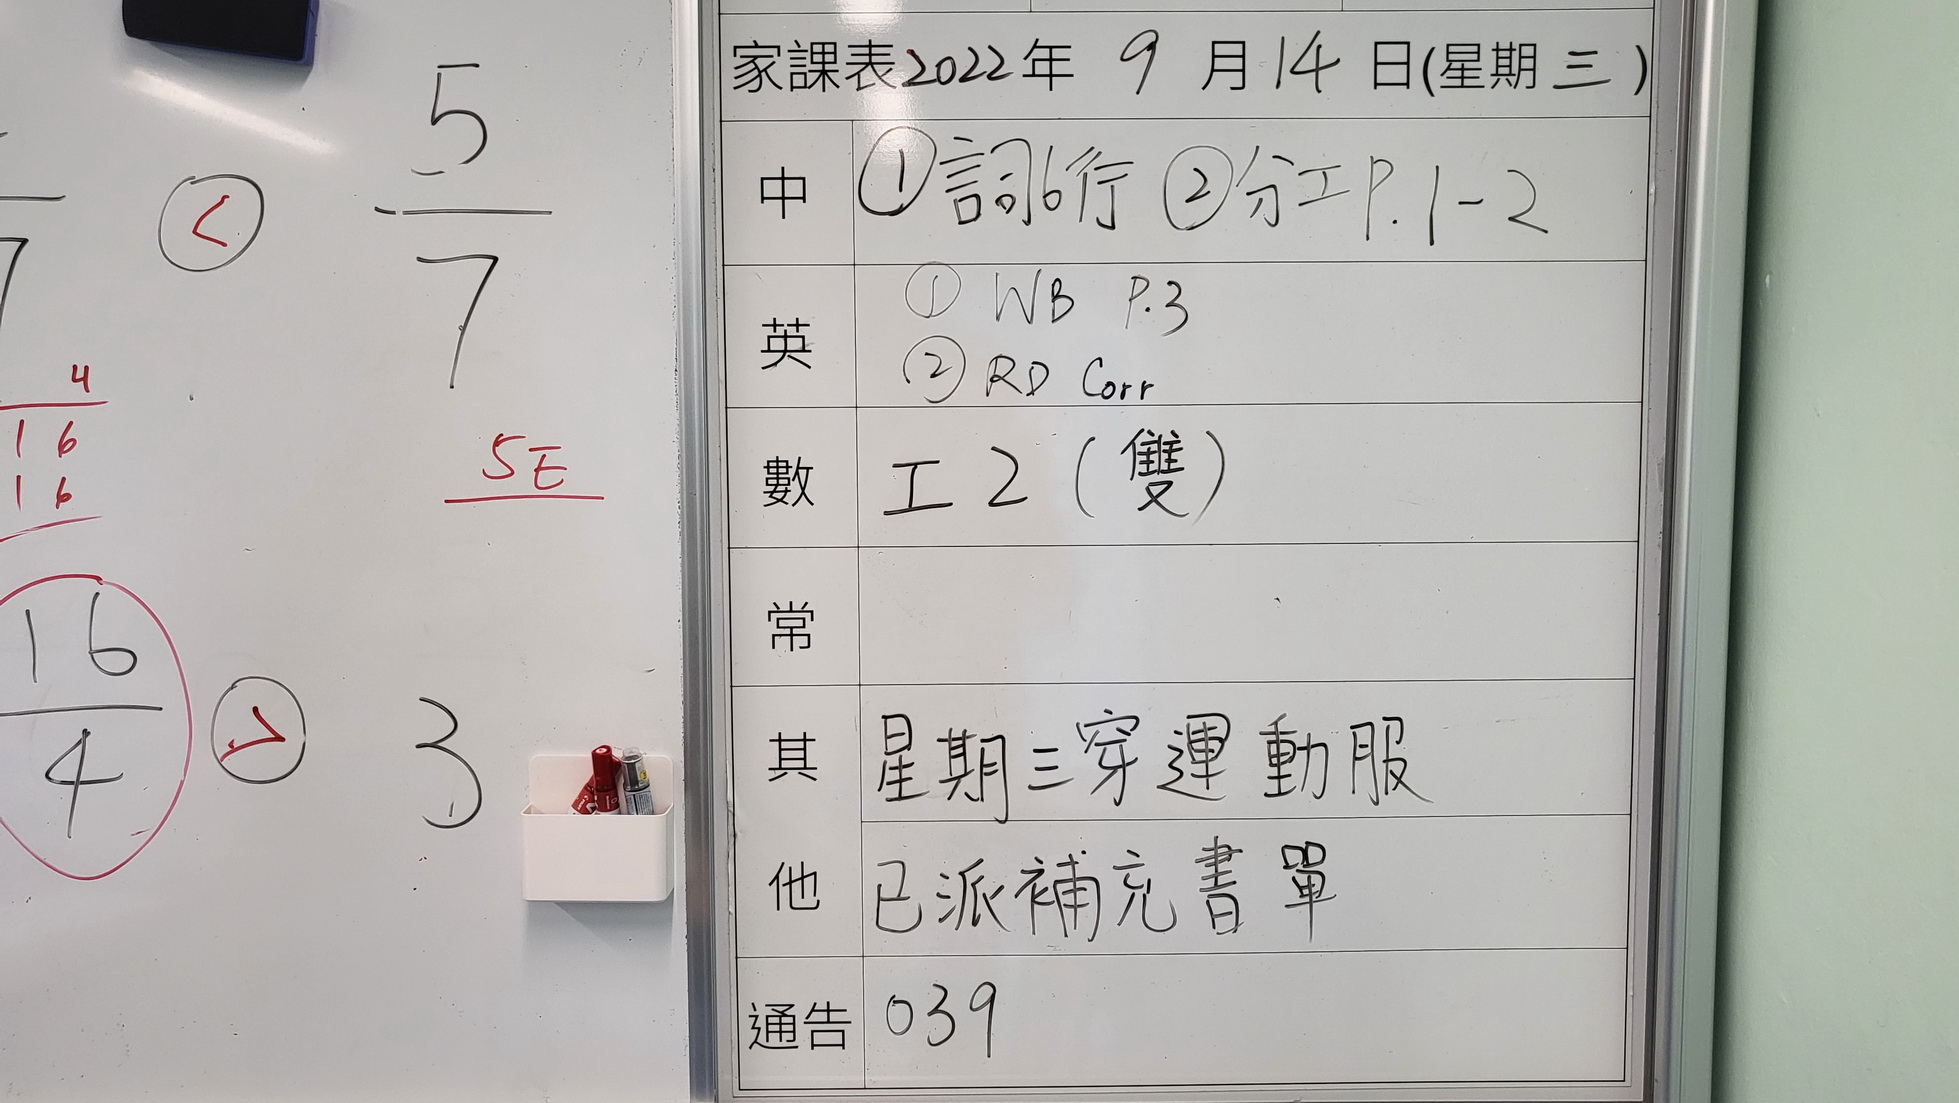 < 5
7 7
4
16
16
5E
16
4 > 3
家課表2022年 9 月 14 日(星期 三 )
中 ①詞6行 ②分工P.1-2
英 ① WB P.3
② RD Corr
數 工2(雙)
常
其他 星期三穿運動服
已派補充書單
通告 039